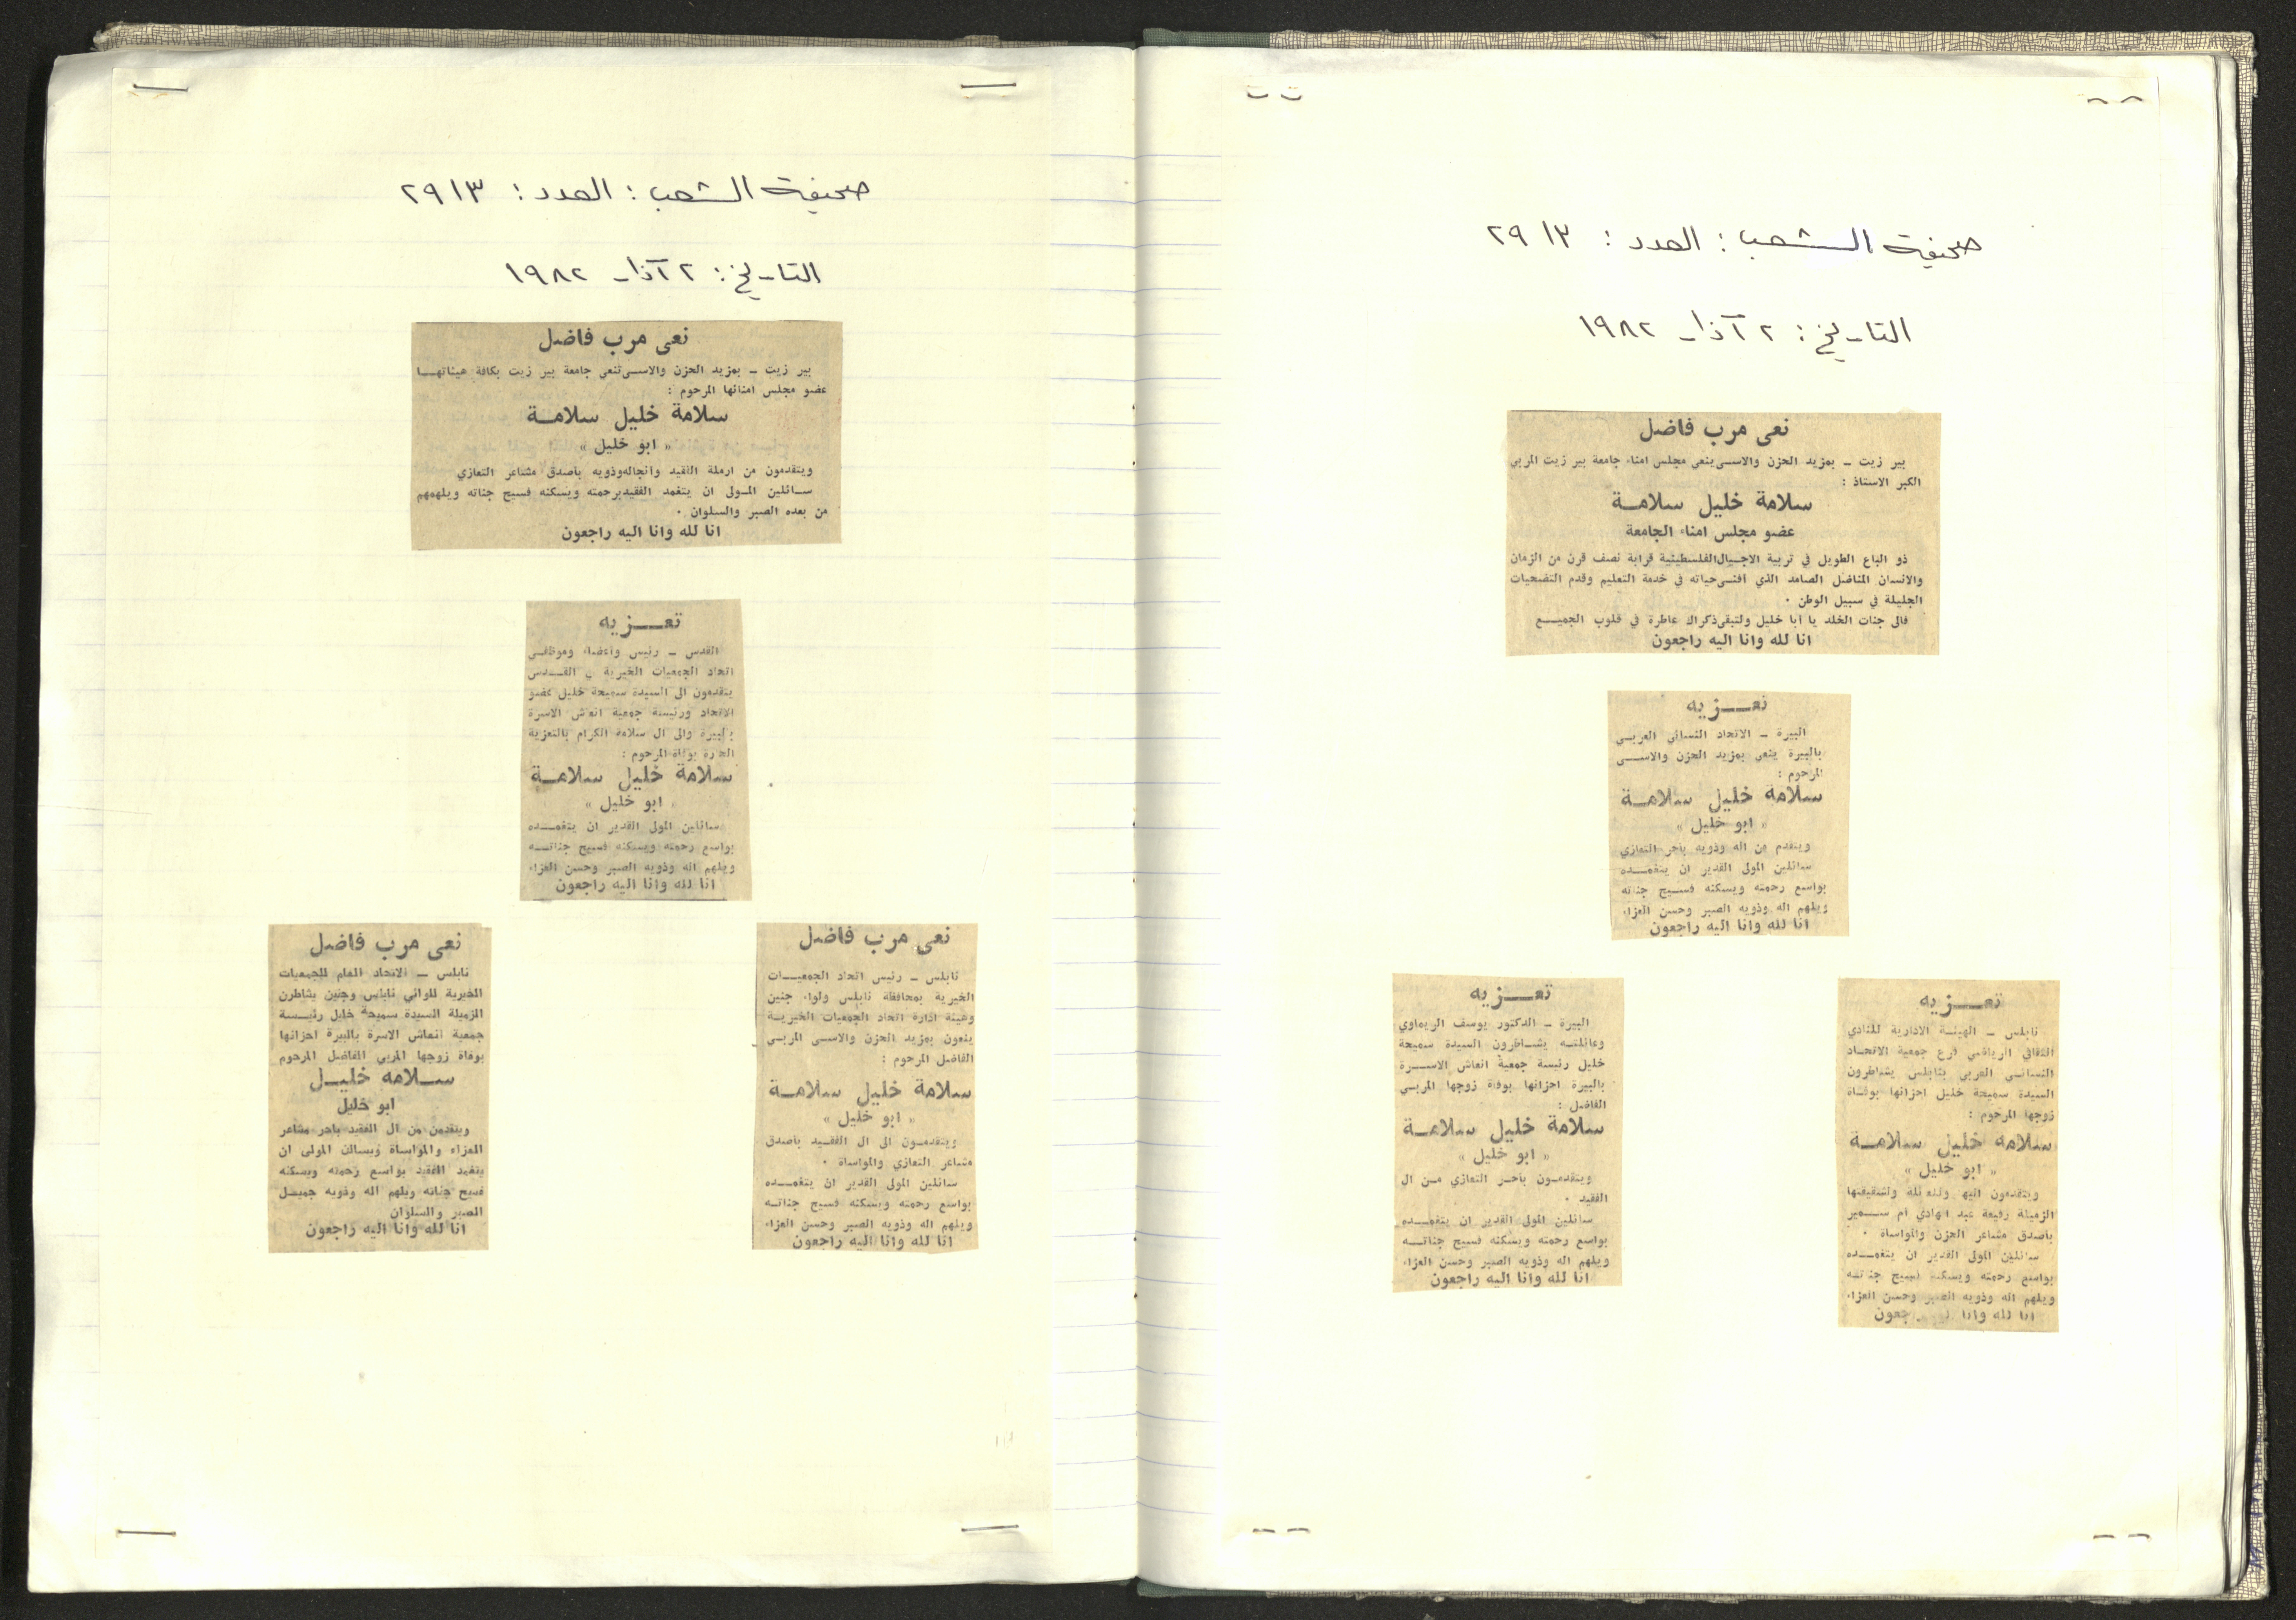 صحيفة الشعب : العدد : ٢٩١٣
التاريخ : ٢ آذار ١٩٨٢
نعى مرب فاضل
بير زيت ــ بمزيد الحزن والاسى ينعى مجلس امناء جامعة بير زيت المربي
الكبر الاستاذ :
سلامة خليل سلامة
عضو مجلس امناء الجامعة
ذو الباع الطويل في تربية الاجيال الفلسطينية قرابة نصف قرن من الزمان
والانسان المناضل الصامد الذي أفنى حياته في خدمة التعليم وقدم التضحيات
الجليلة في سبيل الوطن .
فالى جنات الخلد يا أبا خليل ولتبقى ذكراك عاطرة في قلوب الجميع
انا لله وانا اليه راجعون
تعزيه
البيرة ــ الاتحاد النسائي العربي
بالبيرة ينعى بمزيد الحزن والاسى
المرحوم :
سلامة خليل سلامة
« ابو خليل »
ويتقدم من اله وذويه باحر التعازي
سائلين المولى القدير ان يتغمده
بواسع رحمته ويسكنه فسيح جناته
ويلهم اله وذويه الصبر وحسن العزاء
انا لله وانا اليه راجعون
تعزيه
نابلس ــ الهيئة الادارية للنادي
الثقافي الرياضي فرع جمعية الاتحاد
النسائي العربي بنابلس يشاطرون
السيدة سميحة خليل احزانها بوفاة
زوجها المرحوم :
سلامة خليل سلامة
« ابو خليل »
ويتقدمون اليها وللعائلة ولشقيقتها
الزميلة رفيعة عبد الهادي ام سمير
بأصدق مشاعر الحزن والمواساة .
سائلين المولى القدير ان يتغمده
بواسع رحمته ويسكنه فسيح جناته
ويلهم اله وذويه الصبر وحسن العزاء
انا لله وانا اليه راجعون
تعزيه
البيرة ــ الدكتور يوسف الريماوي
وعائلته يشاطرون السيدة سميحة
خليل رئيسة جمعية انعاش الاسرة
بالبيرة احزانها بوفاة زوجها المربي
الفاضل :
سلامة خليل سلامة
« ابو خليل »
ويتقدمون بأحر التعازي من ال
الفقيد .
سائلين المولى القدير ان يتغمده
بواسع رحمته ويسكنه فسيح جناته
ويلهم اله وذويه الصبر وحسن العزاء
انا لله وانا اليه راجعون
صحيفة الشعب : العدد : ٢٩١٣
التاريخ : ٢ آذار ١٩٨٢
نعى مرب فاضل
بير زيت ــ بمزيد الحزن والاسى تنعى جامعة بير زيت بكافة هيئاتها
عضو مجلس امنائها المرحوم :
سلامة خليل سلامة
« ابو خليل »
ويتقدمون من ارملة الفقيد وانجاله وذويه باصدق مشاعر التعازي
سائلين المولى ان يتغمد الفقيد برحمته ويسكنه فسيح جناته ويلهمهم
من بعده الصبر والسلوان .
انا لله وانا اليه راجعون
تعزيه
القدس ــ رئيس واعضاء وموظفي
اتحاد الجمعيات الخيرية في القدس
يتقدمون الى السيدة سميحة خليل عضو
الاتحاد ورئيسة جمعية انعاش الاسرة
بالبيرة والى ال سلامة الكرام بالتعزية
الحارة بوفاة المرحوم :
سلامة خليل سلامة
« ابو خليل »
سائلين المولى القدير ان يتغمده
بواسع رحمته ويسكنه فسيح جناته
ويلهم اله وذويه الصبر وحسن العزاء
انا لله وانا اليه راجعون
نعى مرب فاضل
نابلس ــ رئيس اتحاد الجمعيات
الخيرية بمحافظة نابلس ولواء جنين
وهيئة ادارة اتحاد الجمعيات الخيرية
ينعون بمزيد الحزن والاسى المربي
الفاضل المرحوم :
سلامة خليل سلامة
« ابو خليل »
ويتقدمون الى ال الفقيد بأصدق
مشاعر التعازي والمواساة .
سائلين المولى القدير ان يتغمده
بواسع رحمته ويسكنه فسيح جناته
ويلهم اله وذويه الصبر وحسن العزاء
انا لله وانا اليه راجعون
نعى مرب فاضل
نابلس ــ الاتحاد العام للجمعيات
الخيرية للوائي نابلس وجنين يشاطرن
الزميلة السيدة سميحة خليل رئيسة
جمعية انعاش الاسرة بالبيرة احزانها
بوفاة زوجها المربي الفاضل المرحوم
سلامه خليل
ابو خليل
ويتقدمن من ال الفقيد باحر مشاعر
العزاء والمواساة ويسالن المولى ان
يتغمد الفقيد بواسع رحمته ويسكنه
فسيح جناته ويلهم اله وذويه جميل
الصبر والسلوان
انا لله وانا اليه راجعون